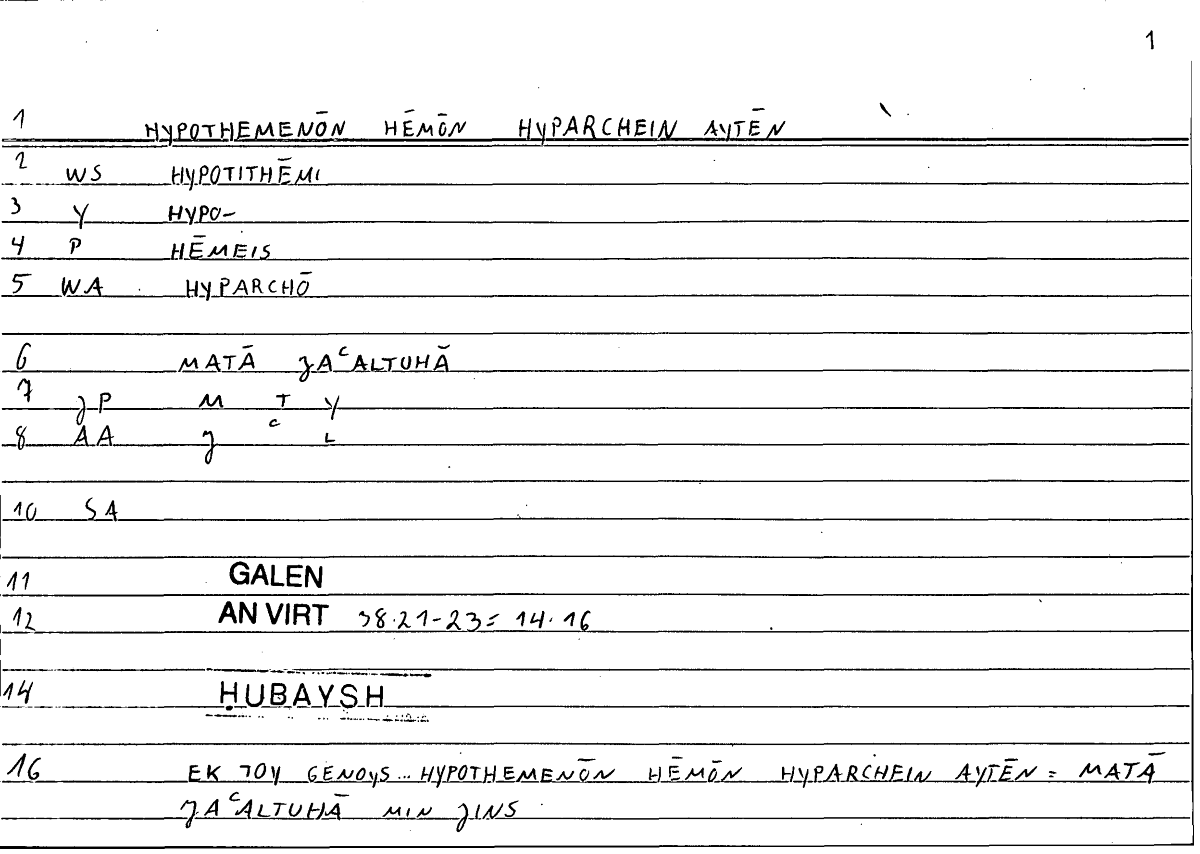 1
1 HYPOTHEMENŌN HĒMŌN HYPARCHEIN AYTĒN
2 WS HYPOTITHĒMI
3 Y HYPO-
4 P HĒMEIS
5 WA HYPARCHŌ
6 MATĀ JAᶜALTUHĀ
7 JP M T Y
8 AA J ᶜ L
10 SA
11 GALEN
12 AN VIRT 38.21-23= 14.16
14 ḤUBAYSH
16 EK TOY GENOYS... HYPOTHEMENŌN HĒMŌN HYPARCHEIN AYTĒN = MATĀ
JAᶜALTUHĀ MIN JINS